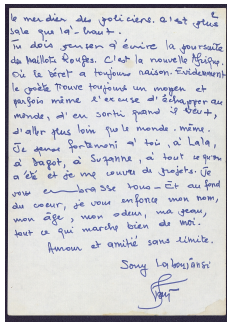 2
le merdier des policiers. C'est plus
sale que là-haut.
Tu dois penser à écrire la poursuite
des Maillots Rouges. C'est la nouvelle Afrique.
Où le béret a toujours raison. Évidemment
le poète trouve toujours un moyen et
parfois même l'excuse d'échapper au
monde, d'en sortir quand il veut,
d'aller plus loin que le monde même.
Je pense fortement à toi, à Lala,
à Bagot, à Suzanne, à tout ce qu'on
a été et je me couvre de projets. Je
vous embrasse tous - Et au fond
du coeur, je vous enfonce mon nom,
mon âge, mon odeur, ma peau,
tout ce qui marche bien de moi.
Amour et amitié sans limite.
Sony Labou Tansi